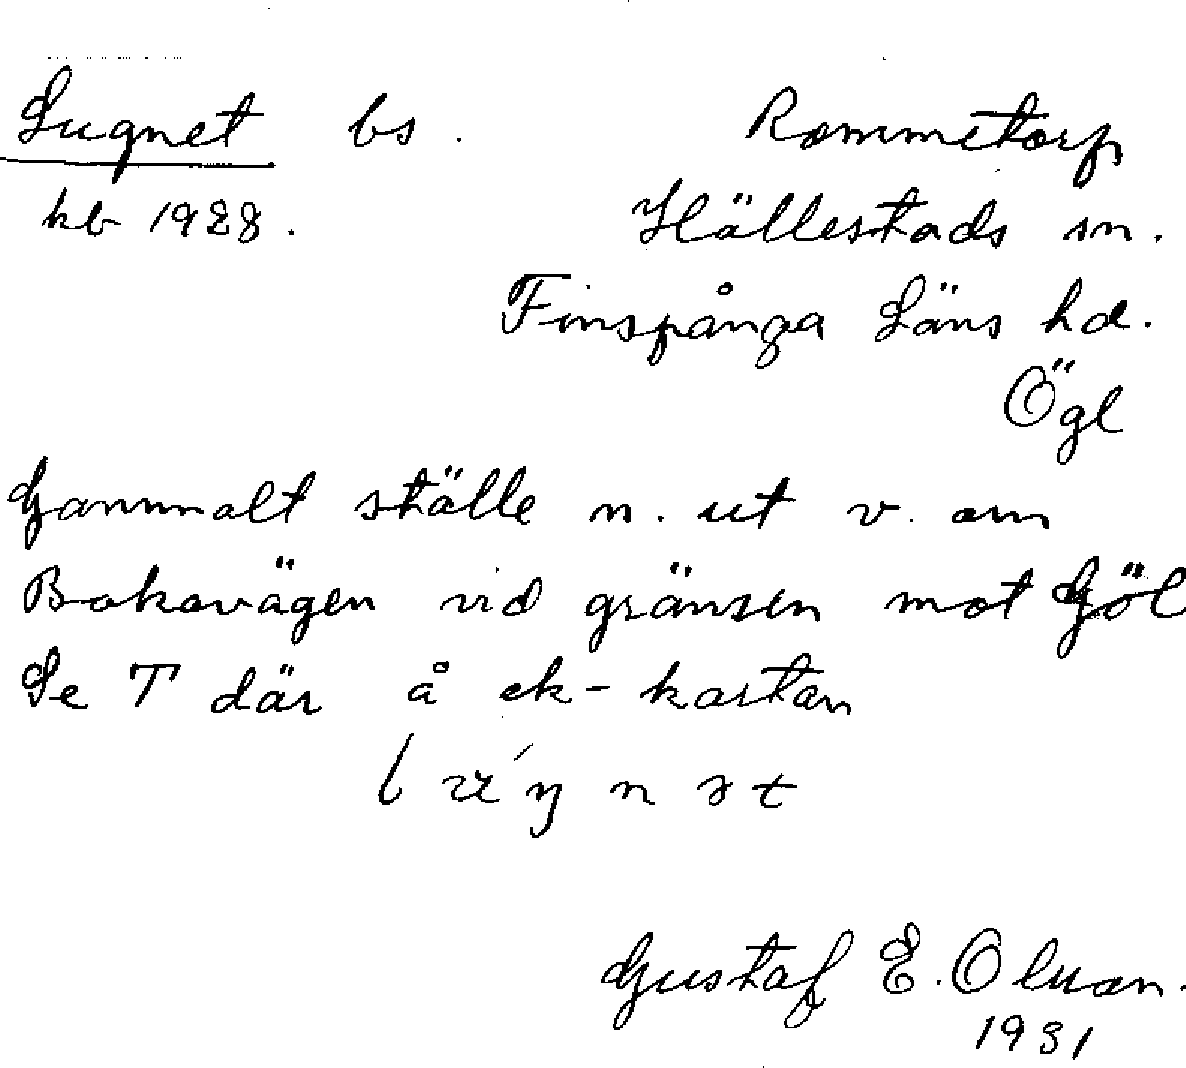 Lugnet bs. Rommetorp
kb 1928. Hällestads sn.
Finspånga Läns hd.
Ögl
Gammalt ställe n. ut v. om
Bokavägen vid gränsen mot Göl
Se T där å ek-kartan
Gustaf E. Olsson.
1931